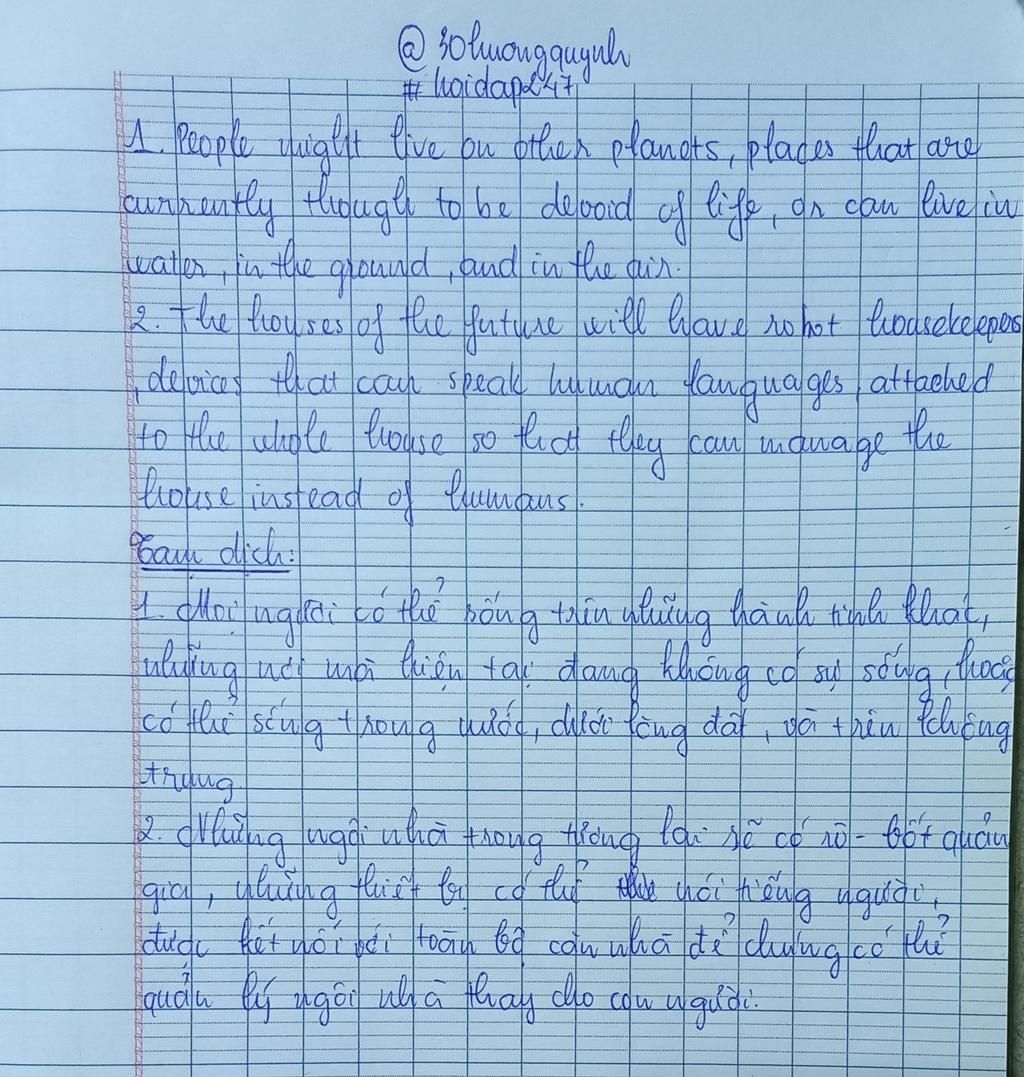 @ 30huongquynh
# hoidap247
1. People might live on other planets, places that are
currently though to be devoid of life, or can live in
water, in the ground, and in the air.
2. The houses of the future will have robot housekeepers
, devices that can speak human languages, attached
to the whole house so that they can manage the
house instead of humans.
Tạm dịch:
1. Mọi người có thể sống trên những hành tinh khác,
những nơi mà hiện tại đang không có sự sống, hoặc
có thể sống trong nước, dưới lòng đất, và trên không
trung.
2. Những ngôi nhà trong tương lai sẽ có rô-bốt quản
gia, những thiết bị có thể nói tiếng người,
được kết nối với toàn bộ căn nhà để chúng có thể
quản lý ngôi nhà thay cho con người.